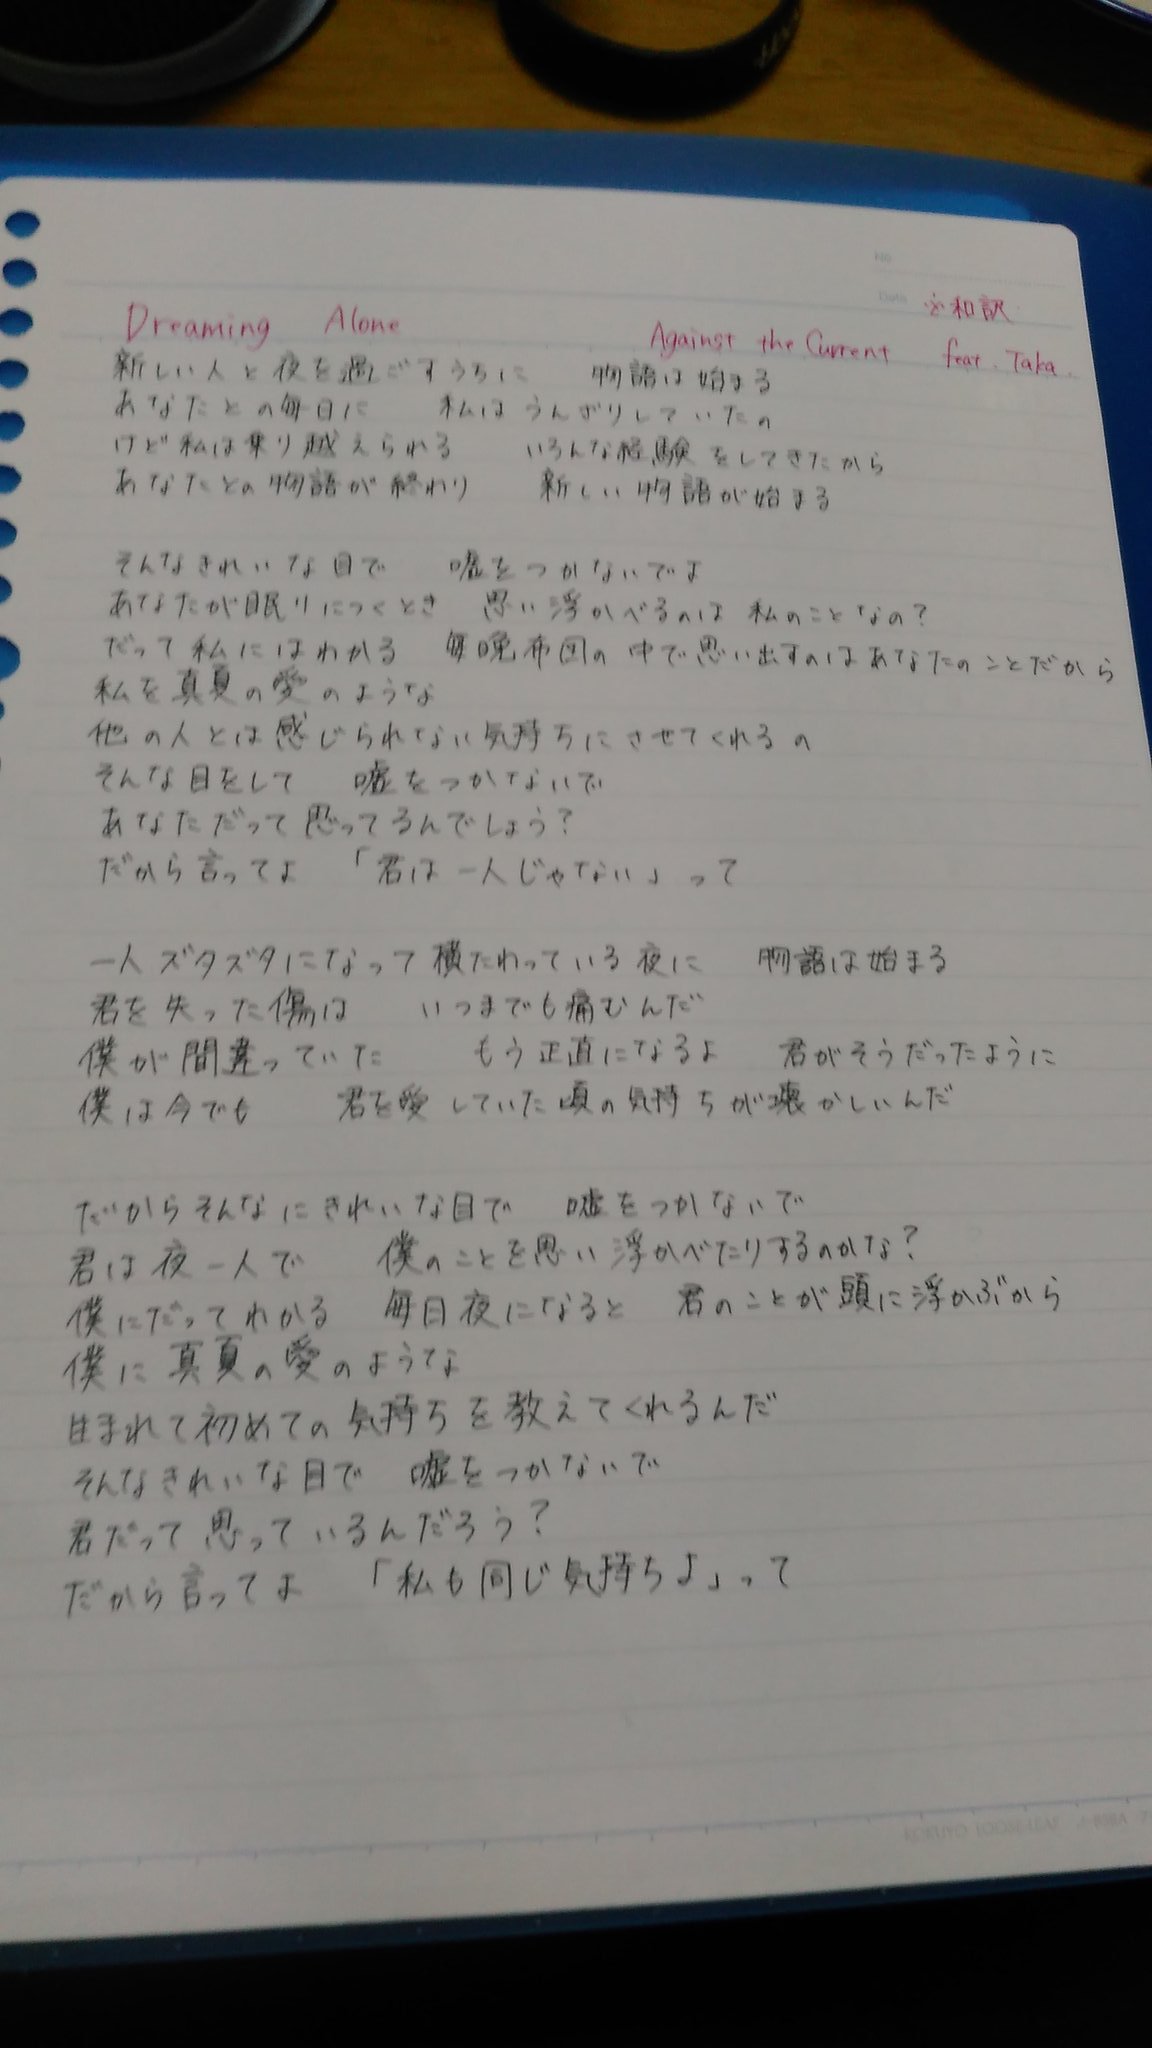 No.
Date
※和訳
Dreaming Alone Against the Current feat. Taka.
新しい人と夜を過ごすうちに 物語は始まる
あなたとの毎日に 私はうんざりしていたの
けど私は乗り越えられる いろんな経験をしてきたから
あなたとの物語が終わり 新しい物語が始まる
そんなきれいな目で 嘘をつかないでよ
あなたが眠りにつくとき 思い浮かべるのは私のことなの?
だって私にはわかる 毎晩布団の中で思い出すのはあなたのことだから
私を真夏の愛のような
他の人とは感じられない気持ちにさせてくれるの
そんな目をして 嘘をつかないで
あなただって思ってるんでしょう?
だから言ってよ 「君は一人じゃない」って
一人ズタズタになって横たわっている夜に 物語は始まる
君を失った傷は いつまでも痛むんだ
僕が間違っていた もう正直になるよ 君がそうだったように
僕は今でも 君を愛していた頃の気持ちが懐かしいんだ
だからそんなにきれいな目で 嘘をつかないで
君は夜一人で 僕のことを思い浮かべたりするのかな?
僕にだってわかる 毎日夜になると 君のことが頭に浮かぶから
僕に真夏の愛のような
生まれて初めての気持ちを教えてくれるんだ
そんなきれいな目で 嘘をつかないで
君だって思っているんだろう?
だから言ってよ 「私も同じ気持ちよ」って
KOKUYO LOOSE-LEAF